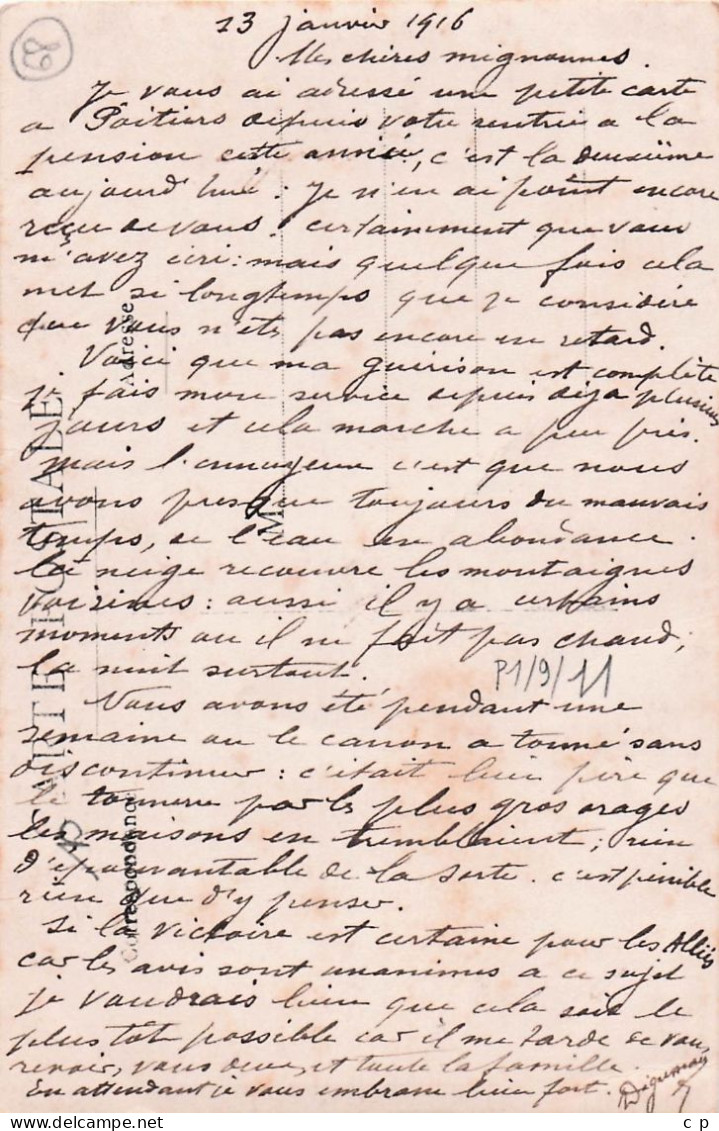 13 janvier 1916
Mes chères mignonnes.
Je vous ai adressé une petite carte
a Poitiers depuis votre rentrée a la
pension cette année, c'est la deuxième
aujourd'hui : Je n'en ai point encore
reçu de vous. certainement que vous
m'avez écri : mais quelque fois cela
met si longtemps que je considère
que vous n'ets pas encore en retard.
Voici que ma guérison est complète
je fais mon service depuis deja plusieurs
jours et cela marche a peu près.
Mais l'ennuyeux c'est que nous
avons presque toujours du mauvais
temps, de l'eau en abondance.
la neige recouvre les montaignes
voizines : aussi il y a certains
moments ou il ne fait pas chaud,
la nuit surtout.
P1/9/11
Nous avons été pendant une
semaine ou le canon a tonné sans
discontinuer : c'était bien pire que
le tonnerre par les plus gros orages
les maisons en tremblaient ; rien
d'epouvantable de la sorte. c'est pénible
rien que d'y penser.
Si la victoire est certaine pour les Alliés
car les avis sont unanimes a ce sujet
je voudrais bien que cela soit le
plus tôt possible car il me tarde de vous
revoir, vous deux, et toute la famille.
En attendant je vous embrasse bien fort.
CARTE POSTALE
Correspondance
Adresse
M